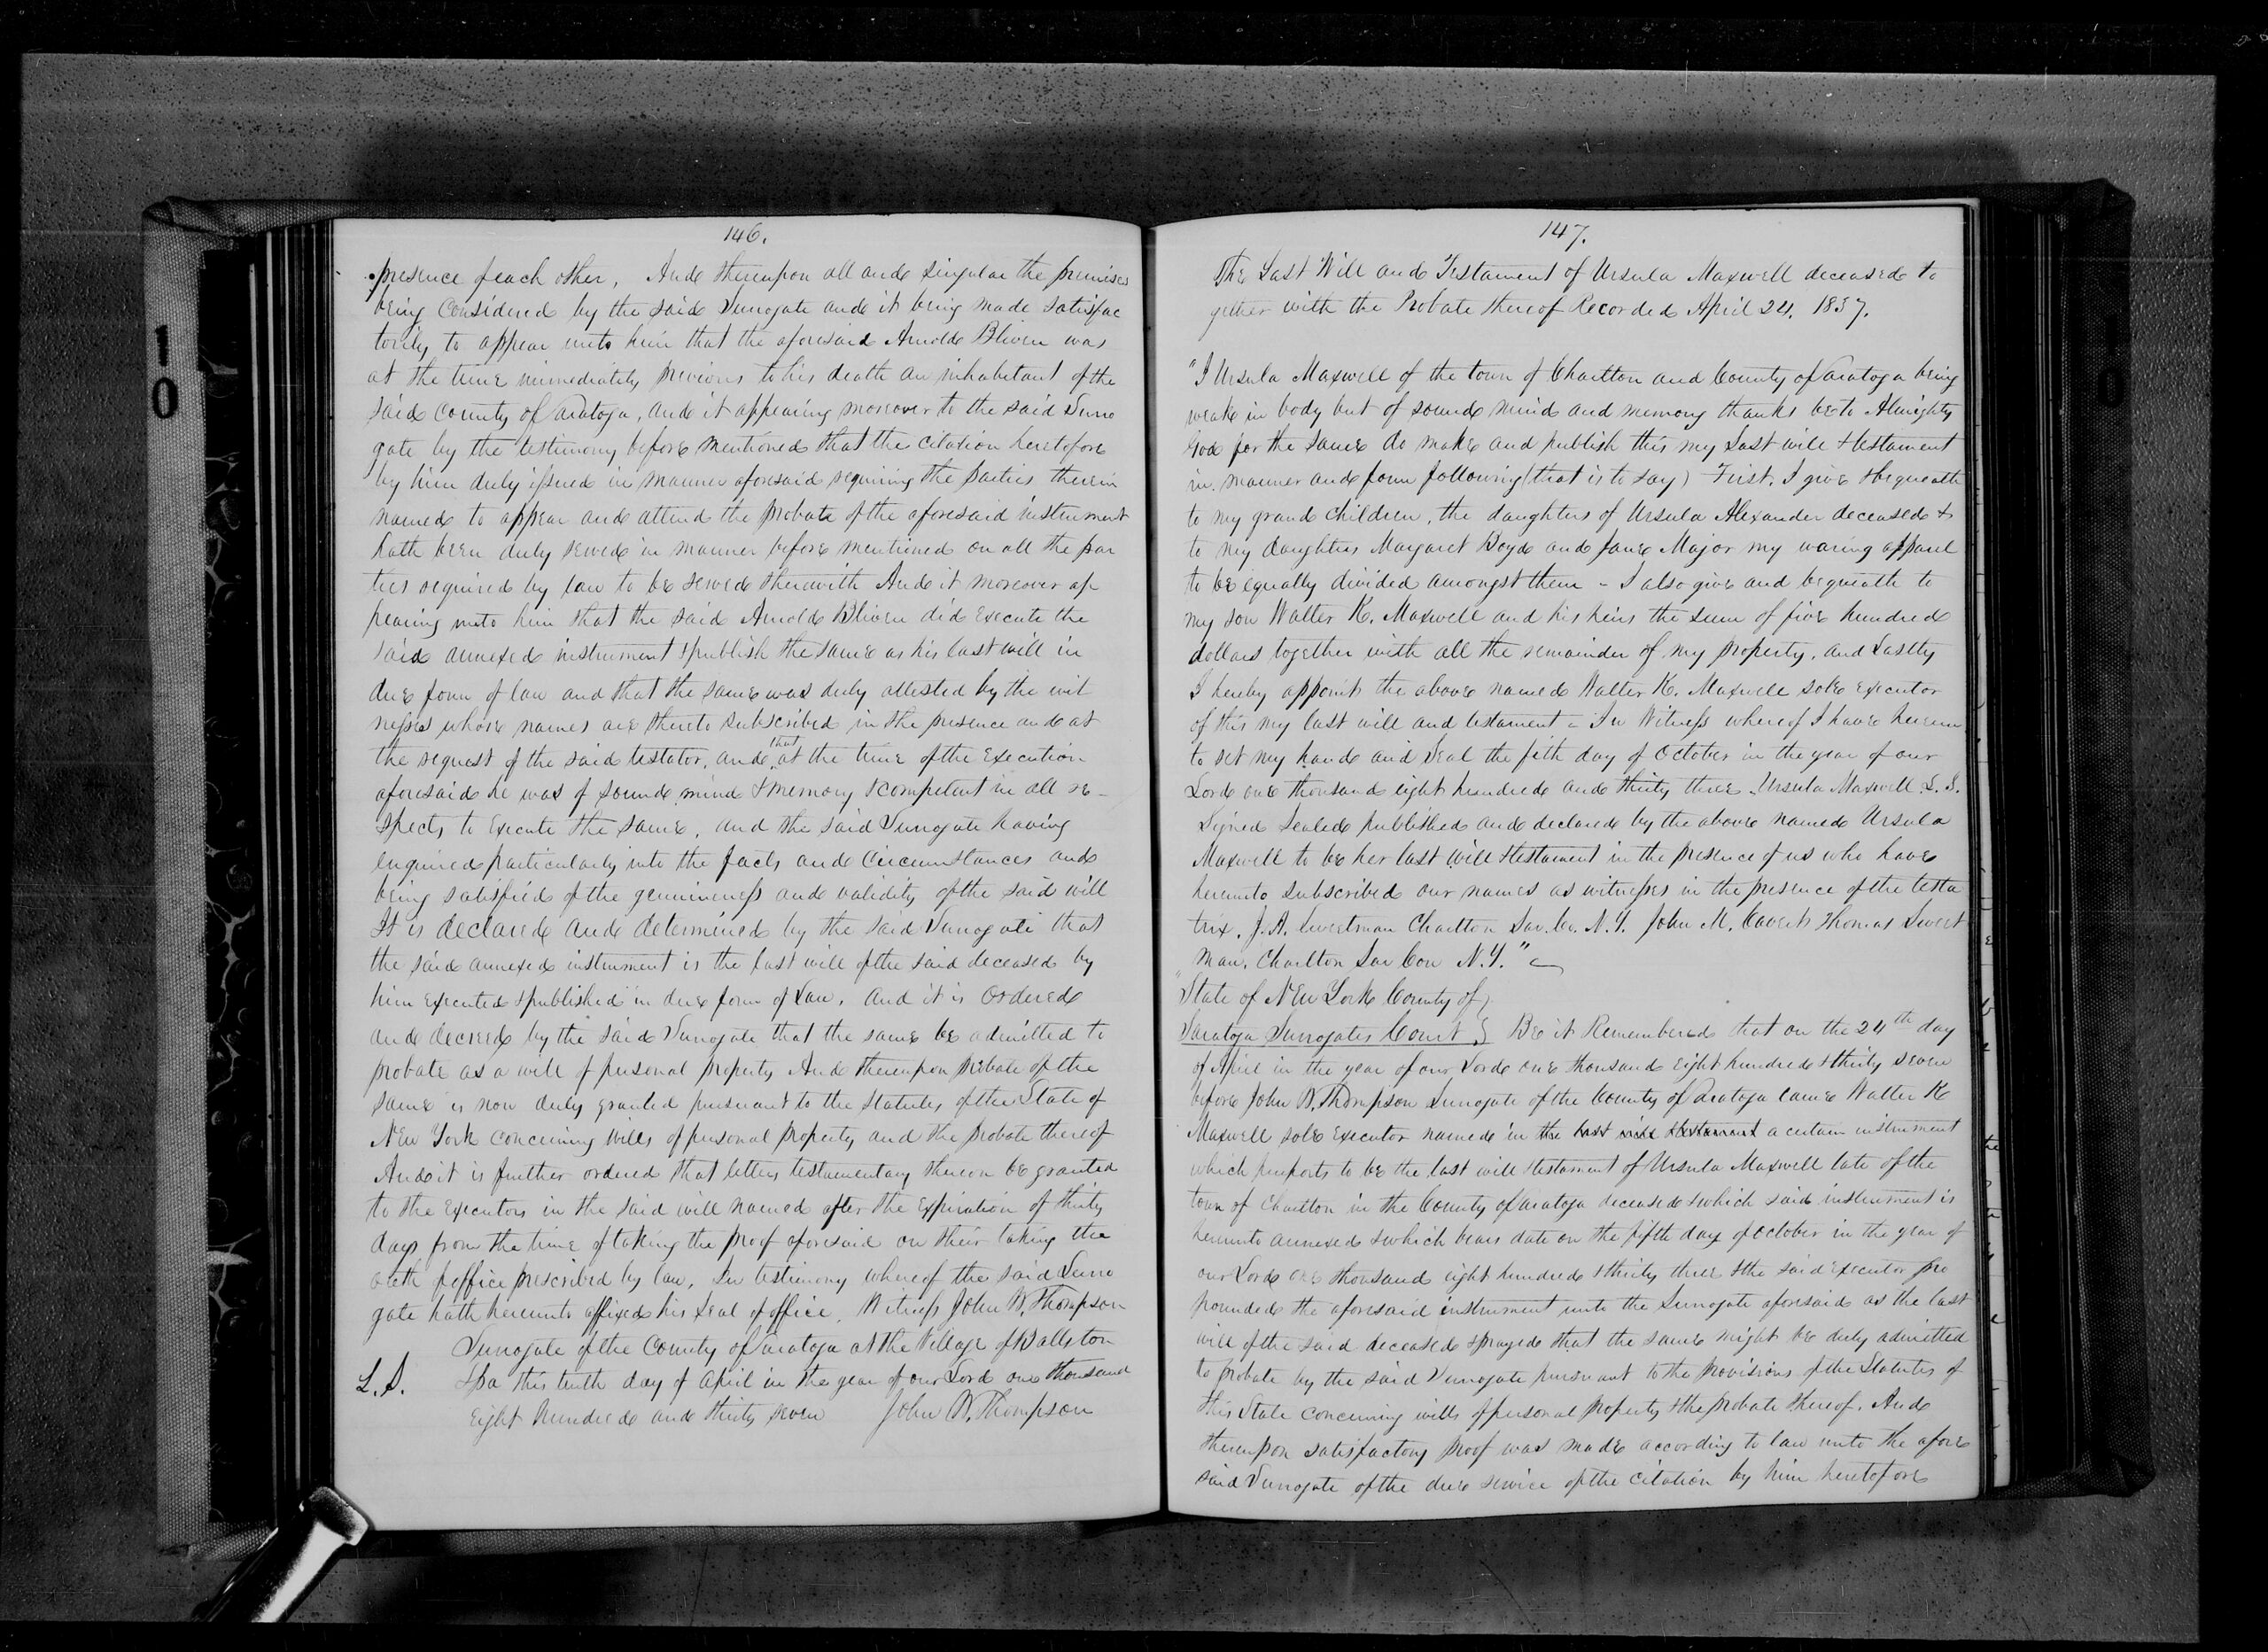 146.
presence of each other, And thereupon all and singular the premises
being considered by the said Surrogate and it being made satisfac
torily to appear unto him that the aforesaid Arnold Bliven was
at the time immediately previous to his death an inhabitant of the
said County of Saratoga, and it appearing moreover to the said Surro
gate by the testimony before mentioned that the citation heretofore
by him duly issued in manner aforesaid requiring the parties therein
named to appear and attend the probate of the aforesaid instrument
hath been duly served in manner before mentioned on all the par
ties required by law to be served therewith And it moreover ap
pearing unto him that the said Arnold Bliven did execute the
said annexed instrument & publish the same as his last will in
due form of law and that the same was duly attested by the wit
nesses whose names are thereto subscribed in the presence and at
the request of the said testator, and that at the time of the execution
aforesaid he was of sound mind & memory & competent in all re-
spects to execute the same, and the said Surrogate having
enquired particularly into the facts and circumstances and
being satisfied of the genuineness and validity of the said will
It is declared and determined by the said Surrogate that
the said annexed instrument is the last will of the said deceased by
him executed & published in due form of Law. And it is Ordered
and decreed by the said Surrogate that the same be admitted to
probate as a will of personal property And thereupon Probate of the
same is now duly granted pursuant to the statutes of the State of
New York concerning wills of personal property and the probate thereof
And it is further ordered that letters testamentary thereon be granted
to the executors in the said will named after the expiration of thirty
days from the time of taking the proof aforesaid on their taking the
oath of office prescribed by law. In testimony whereof the said Surro
gate hath hereunto affixed his seal of office, Witness John W. Thompson
Surrogate of the County of Saratoga at the Village of Ballston
L.S. Spa this tenth day of April in the year of our Lord one thousand
Eight hundred and thirty seven John W. Thompson
147.
The Last Will and Testament of Ursula Maxwell deceased to
gether with the Probate thereof Recorded April 24. 1837.
"I Ursula Maxwell of the town of Charlton and County of Saratoga being
weak in body but of sound mind and memory thanks be to Almighty
God for the same do make and publish this my Last will & testament
in manner and form following (that is to say) First. I give & bequeath
to my grand children, the daughters of Ursula Alexander deceased &
to my daughters Margaret Boyd and Jane Major my waring apparel
to be equally divided amongst them - I also give and bequeath to
my son Walter K. Maxwell and his heirs the sum of five hundred
dollars together with all the remainder of my property, and Lastly
I hereby appoint the above named Walter K. Maxwell sole executor
of this my last will and testament - In Witness whereof I have hereun
to set my hand and Seal the fith day of October in the year of our
Lord one thousand eight hundred and thirty three. Ursula Maxwell L.S.
Signed Sealed published and declared by the above named Ursula
Maxwell to be her last will & testament in the presence of us who have
hereunto subscribed our names as witnesses in the presence of the testa
trix. J. A. Sweetman Charlton Sar. Co. N.Y. John M. Cavert Thomas Sweet
man. Charlton Sar Cou N.Y."
"State of New York County of }
Saratoga Surrogates Court } Be it Remembered that on the 24th day
of April in the year of our Lord one thousand eight hundred & thirty seven
before John W. Thompson Surrogate of the County of Saratoga came Walter K
Maxwell sole executor named in the last will & testament a certain instrument
which purports to be the last will & testament of Ursula Maxwell late of the
town of Charlton in the County of Saratoga deceased & which said instrument is
hereunto annexed & which bears date on the fifth day of October in the year of
our Lord one thousand eight hundred & thirty three & the said executor pro
pounded the aforesaid instrument unto the Surrogate aforesaid as the last
will of the said deceased & prayed that the same might be duly admitted
to probate by the said Surrogate pursuant to the provisions of the Statutes of
this State concerning wills of personal property & the probate thereof. And
thereupon satisfactory proof was made according to law unto the afore
said Surrogate of the due service of the citation by him heretofore
10